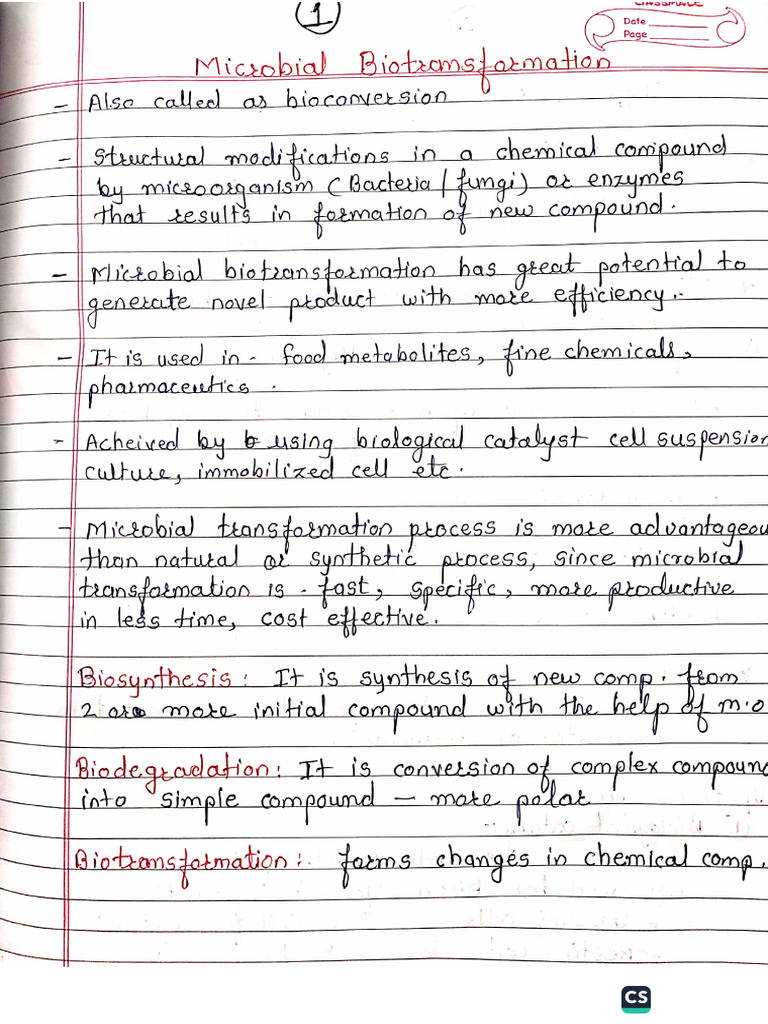 1
CLASSMATE
Date
Page
Microbial Biotransformation
- Also called as bioconversion
- Structural modifications in a chemical compound
by microorganism (Bacteria / fungi) or enzymes
that results in formation of new compound.
- Microbial biotransformation has great potential to
generate novel product with more efficiency.
- It is used in - food metabolites, fine chemicals,
pharmaceutics.
- Acheived by using biological catalyst cell suspension
culture, immobilized cell etc.
- Microbial transformation process is more advantageou
than natural or synthetic process, since microbial
transformation is - fast, specific, more productive
in less time, cost effective.
Biosynthesis: It is synthesis of new comp. from
2 or more initial compound with the help of m.o
Biodegradation: It is conversion of complex compoun
into simple compound - more polar
Biotransformation: forms changes in chemical comp.
CS